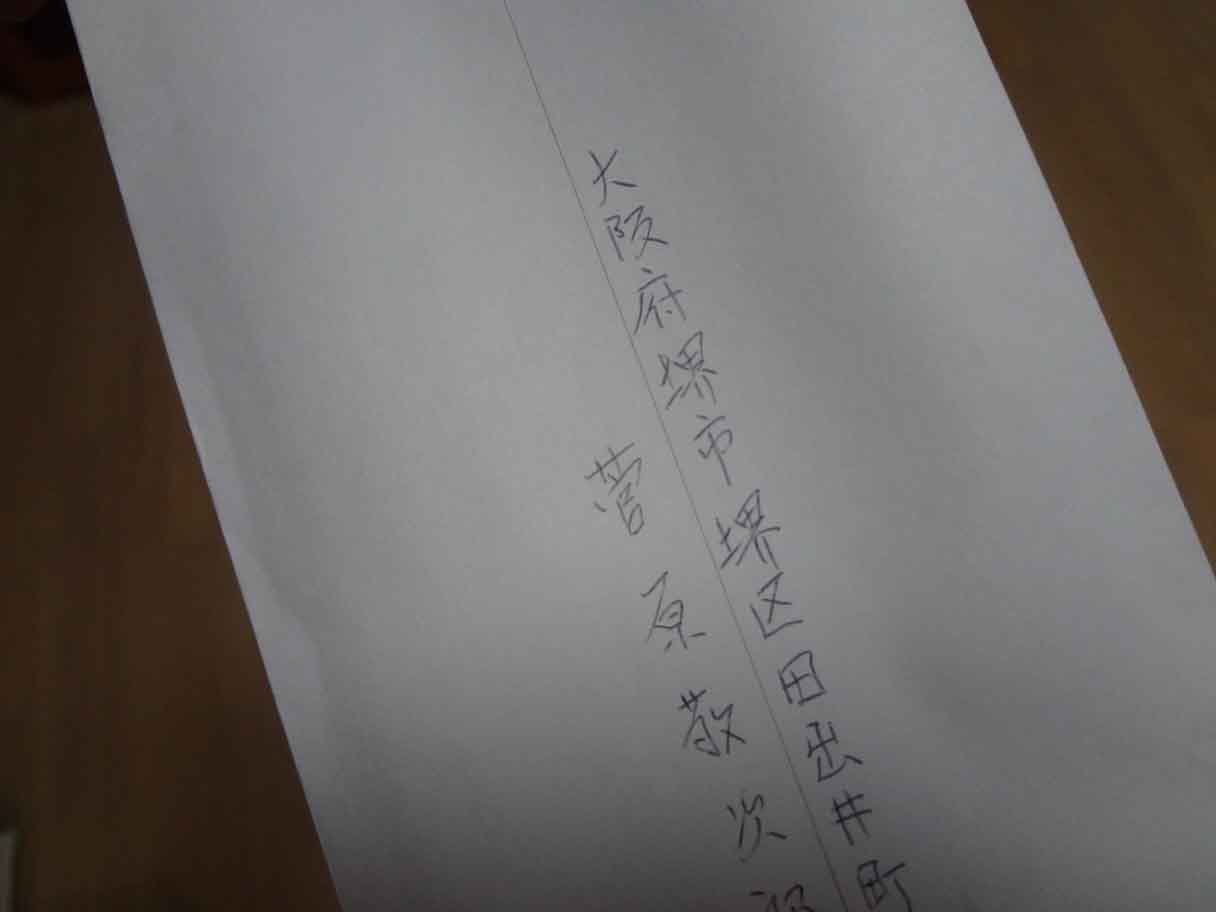 大阪府堺市堺区田出井町
菅原敬次郎